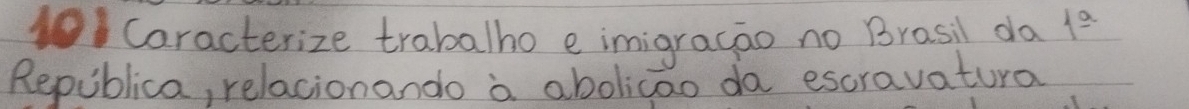 10) Caracterize trabalho e imigração no Brasil da 1ª
República, relacionando à abolição da escravatura